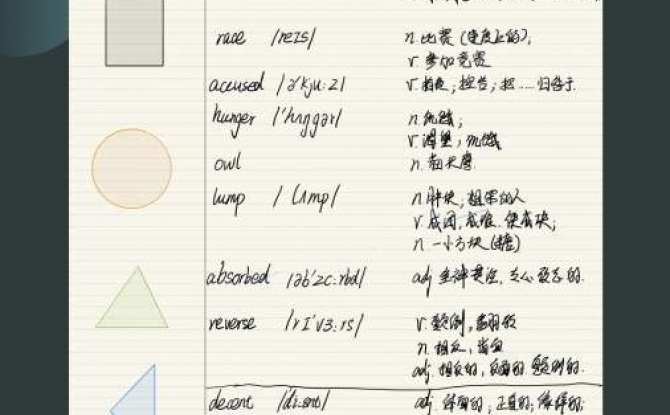 race /reɪs/ n. 比赛 (速度上的);
v. 参加竞赛
accused /ə'kju:z/ v. 指责; 控告; 把......归咎于
hunger /'hʌŋgər/ n. 饥饿;
v. 渴望, 饥饿
owl n. 猫头鹰
lump / lʌmp/ n. 肿块,
v. 成团, 成堆
n. 一小方块 (糖)
absorbed /əb'zɔ:rbd/ adj. 全神贯注, 专心致志的.
reverse /rɪ'vɜ:rs/ v. 颠倒,
n. 相反, 背面
adj. 相反的, 反面的. 颠倒的.
decent /'di:snt/ adj. 得体的; 正直的;